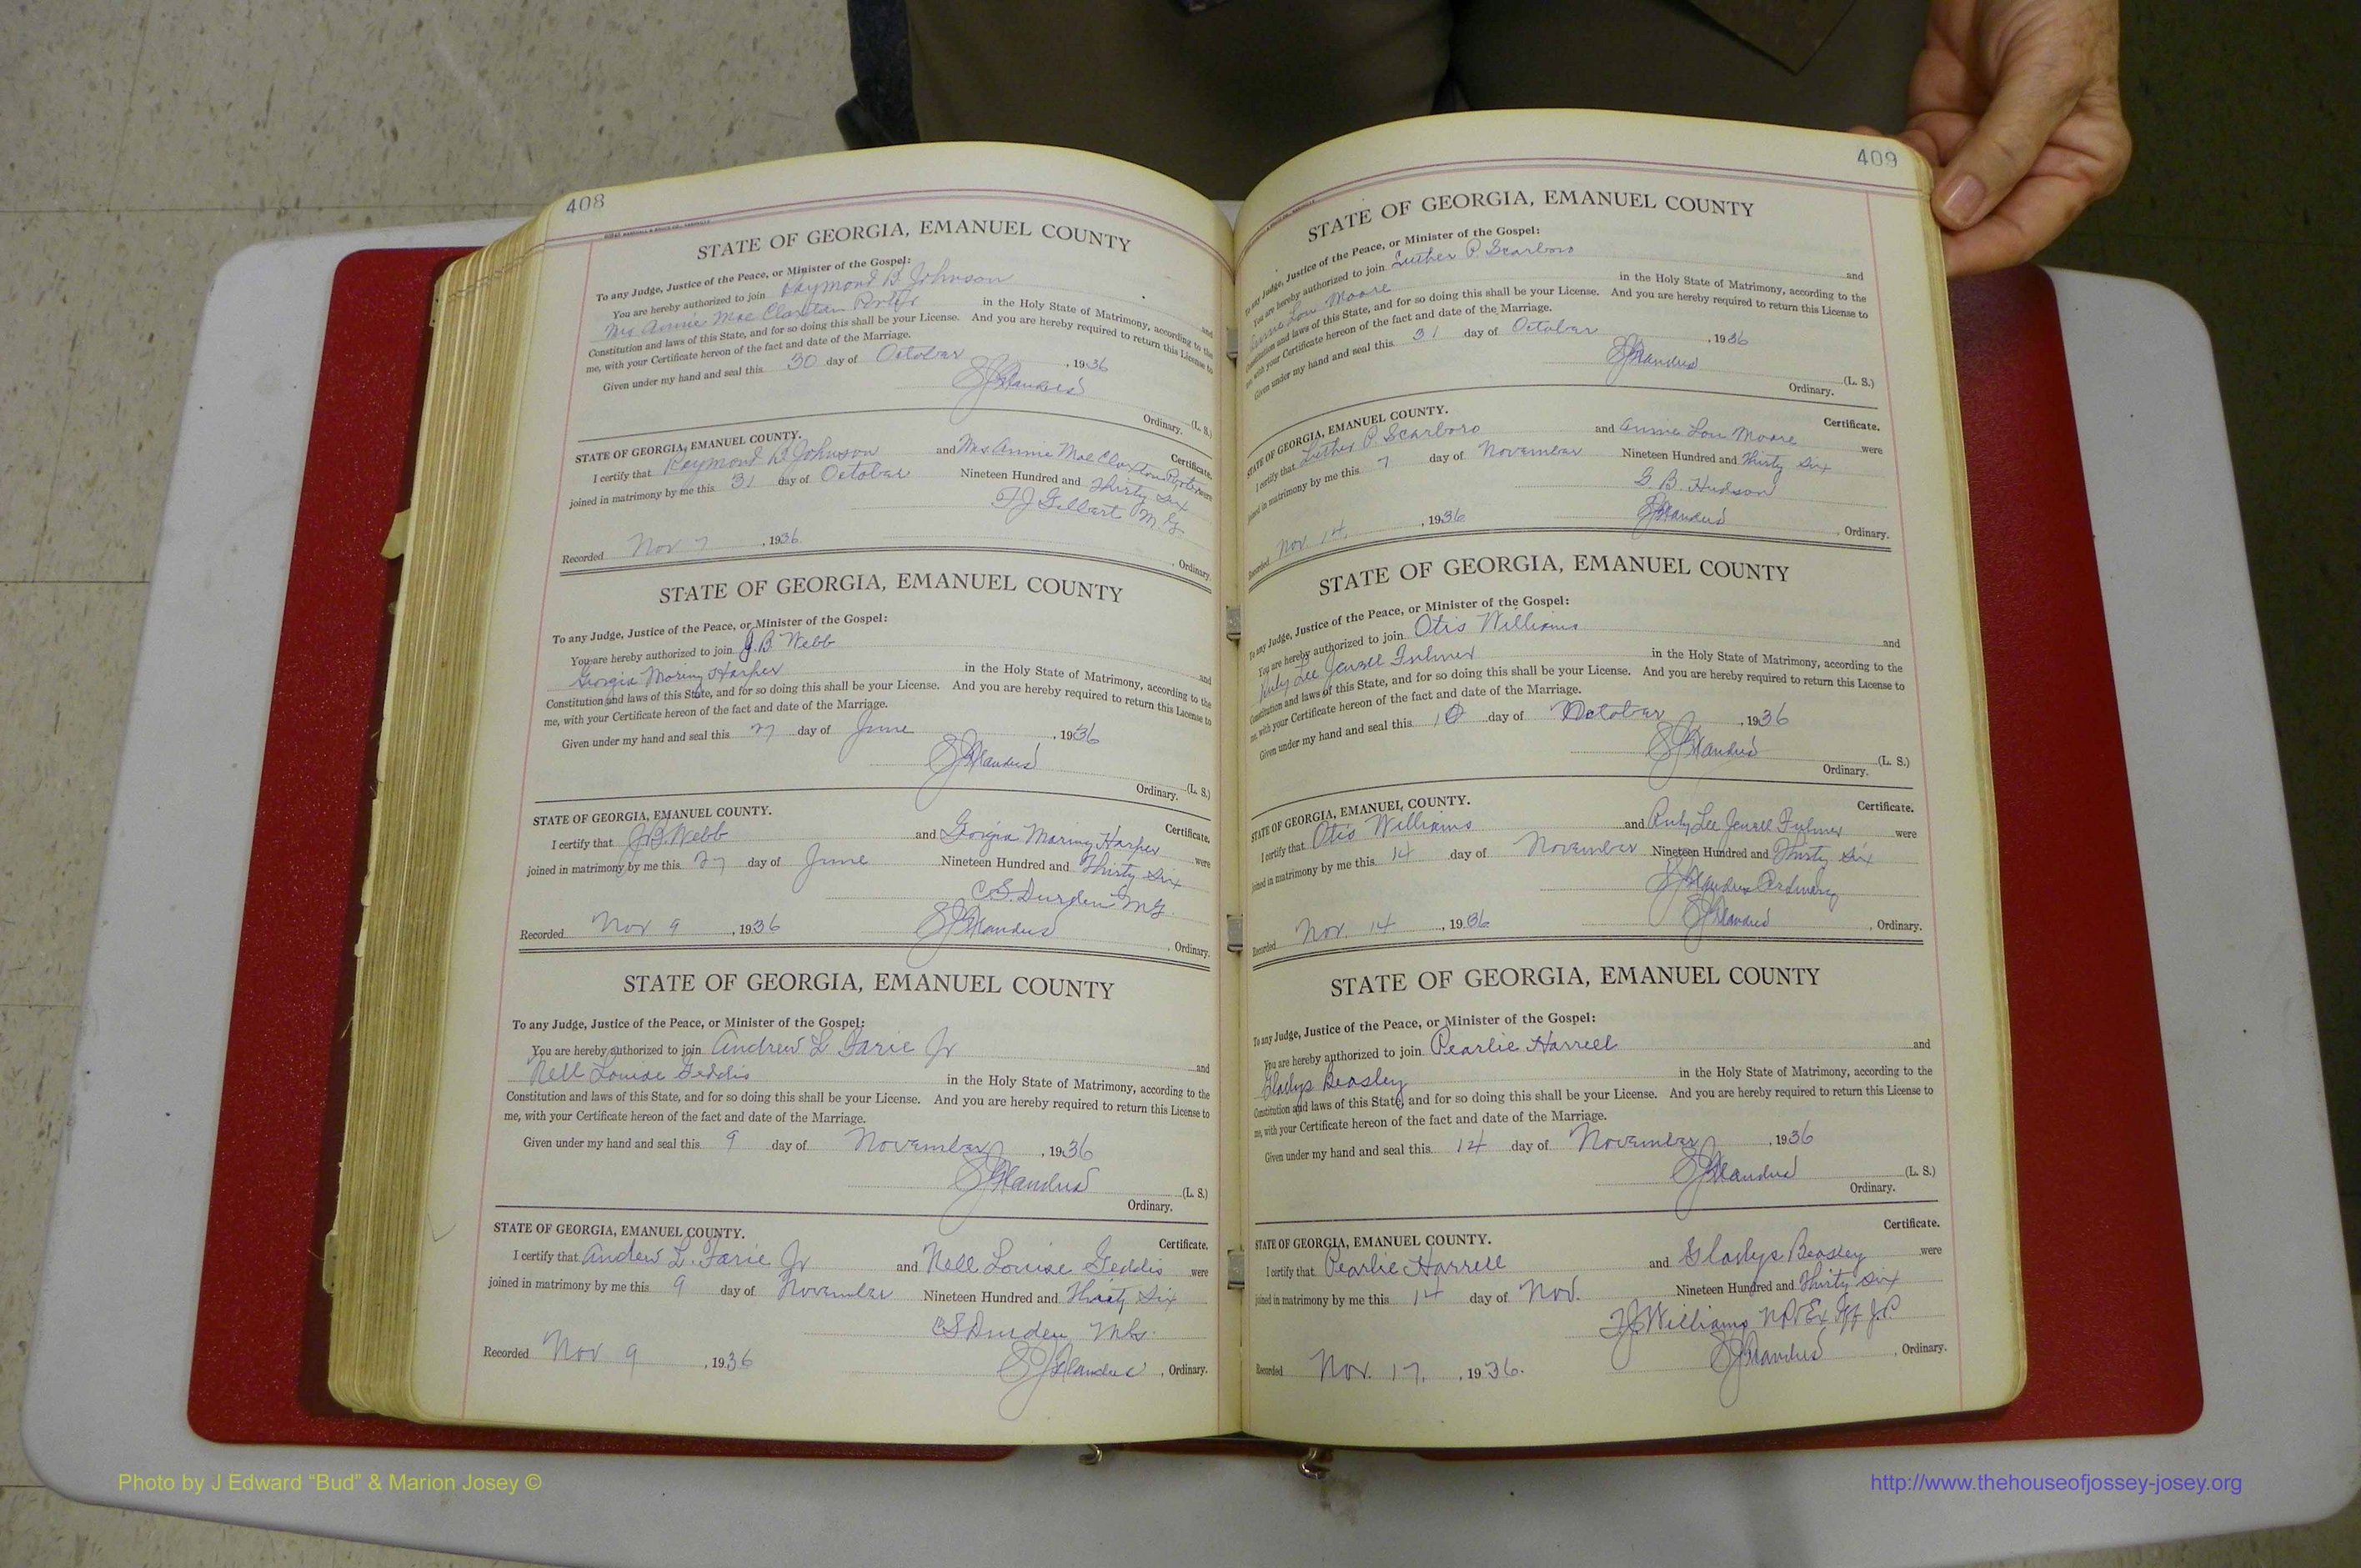 408
STATE OF GEORGIA, EMANUEL COUNTY
To any Judge, Justice of the Peace, or Minister of the Gospel:
You are hereby authorized to join Raymond B. Johnson and
Mrs Annie Mae Claxton Porter in the Holy State of Matrimony, according to the
Constitution and laws of this State, and for so doing this shall be your License. And you are hereby required to return this License to
me, with your Certificate hereon of the fact and date of the Marriage.
Given under my hand and seal this 30 day of October, 1936
(L. S.)
Ordinary.
STATE OF GEORGIA, EMANUEL COUNTY. Certificate.
I certify that Raymond B Johnson and Mrs Annie Mae Claxton Porter were
joined in matrimony by me this 31 day of October Nineteen Hundred and Thirty Six
T J Gilbert M.G.
Recorded Nov 7, 1936 , Ordinary.
STATE OF GEORGIA, EMANUEL COUNTY
To any Judge, Justice of the Peace, or Minister of the Gospel:
You are hereby authorized to join J.B. Webb and
Georgia Moring Harper in the Holy State of Matrimony, according to the
Constitution and laws of this State, and for so doing this shall be your License. And you are hereby required to return this License to
me, with your Certificate hereon of the fact and date of the Marriage.
Given under my hand and seal this 27 day of June, 1936
(L. S.)
Ordinary.
STATE OF GEORGIA, EMANUEL COUNTY. Certificate.
I certify that J.B. Webb and Georgia Moring Harper were
joined in matrimony by me this 27 day of June Nineteen Hundred and Thirty Six
C.S. Durden M.G.
Recorded Nov 9, 1936 , Ordinary.
STATE OF GEORGIA, EMANUEL COUNTY
To any Judge, Justice of the Peace, or Minister of the Gospel:
You are hereby authorized to join Andrew L Farie Jr and
Nell Louise Geddis in the Holy State of Matrimony, according to the
Constitution and laws of this State, and for so doing this shall be your License. And you are hereby required to return this License to
me, with your Certificate hereon of the fact and date of the Marriage.
Given under my hand and seal this 9 day of November, 1936
(L. S.)
Ordinary.
STATE OF GEORGIA, EMANUEL COUNTY. Certificate.
I certify that Andrew L. Farie Jr and Nell Louise Geddis were
joined in matrimony by me this 9 day of November Nineteen Hundred and Thirty Six
C S Durden
Recorded Nov 9, 1936 , Ordinary.
409
STATE OF GEORGIA, EMANUEL COUNTY
To any Judge, Justice of the Peace, or Minister of the Gospel:
You are hereby authorized to join Luther P. Scarboro and
Annie Lou Moore in the Holy State of Matrimony, according to the
Constitution and laws of this State, and for so doing this shall be your License. And you are hereby required to return this License to
me, with your Certificate hereon of the fact and date of the Marriage.
Given under my hand and seal this 31 day of October, 1936
(L. S.)
Ordinary.
STATE OF GEORGIA, EMANUEL COUNTY. Certificate.
I certify that Luther P. Scarboro and Annie Lou Moore were
joined in matrimony by me this 7 day of November Nineteen Hundred and Thirty Six
G. B. Hudson
Recorded Nov. 14, 1936 , Ordinary.
STATE OF GEORGIA, EMANUEL COUNTY
To any Judge, Justice of the Peace, or Minister of the Gospel:
You are hereby authorized to join Otis Williams and
Ruby Lee Jewell Fulmer in the Holy State of Matrimony, according to the
Constitution and laws of this State, and for so doing this shall be your License. And you are hereby required to return this License to
me, with your Certificate hereon of the fact and date of the Marriage.
Given under my hand and seal this 10 day of October, 1936
(L. S.)
Ordinary.
STATE OF GEORGIA, EMANUEL COUNTY. Certificate.
I certify that Otis Williams and Ruby Lee Jewell Fulmer were
joined in matrimony by me this 14 day of November Nineteen Hundred and Thirty Six
Ordinary
Recorded Nov. 14, 1936 , Ordinary.
STATE OF GEORGIA, EMANUEL COUNTY
To any Judge, Justice of the Peace, or Minister of the Gospel:
You are hereby authorized to join Pearlie Harrell and
Gladys Beasley in the Holy State of Matrimony, according to the
Constitution and laws of this State, and for so doing this shall be your License. And you are hereby required to return this License to
me, with your Certificate hereon of the fact and date of the Marriage.
Given under my hand and seal this 14 day of November, 1936
(L. S.)
Ordinary.
STATE OF GEORGIA, EMANUEL COUNTY. Certificate.
I certify that Pearlie Harrell and Gladys Beasley were
joined in matrimony by me this 14 day of Nov. Nineteen Hundred and Thirty Six
Williams NP & Ex Off J.P.
Recorded Nov. 17, 1936. , Ordinary.
Photo by J Edward “Bud” & Marion Josey ©
http://www.thehouseofjossey-josey.org